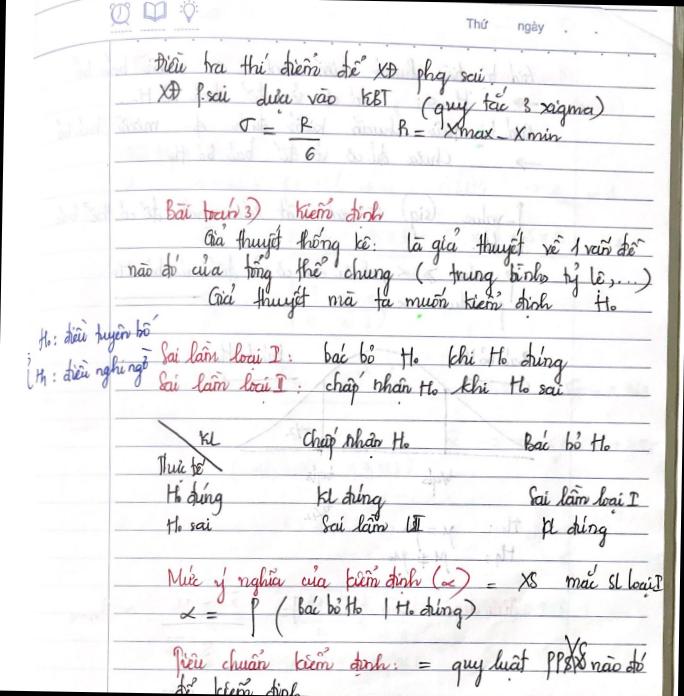 Thứ ngày . .
Điều tra thí điểm để XĐ phg sai.
XĐ p.sai dựa vào KBT (quy tắc 3 xigma)
σ = R/6 R = Xmax - Xmin
Bài toán 3) Kiểm định
Giả thuyết thống kê: là giả thuyết về 1 vấn đề
nào đó của tổng thể chung ( trung bình, tỷ lệ,...)
Giả thuyết mà ta muốn kiểm định H₀
H₀: điều tuyên bố
H₁: điều nghi ngờ
Sai lầm loại I: bác bỏ H₀ khi H₀ đúng
Sai lầm loại II: chấp nhận H₀ khi H₀ sai
KL Chấp nhận H₀ Bác bỏ H₀
Thực tế
H₀ đúng KL đúng Sai lầm loại I
H₀ sai Sai lầm LII KL đúng
Mức ý nghĩa của kiểm định (α) = XS mắc SL loại I
α = P ( Bác bỏ H₀ | H₀ đúng)
Tiêu chuẩn kiểm định: = quy luật PPXS nào đó
để kiểm định